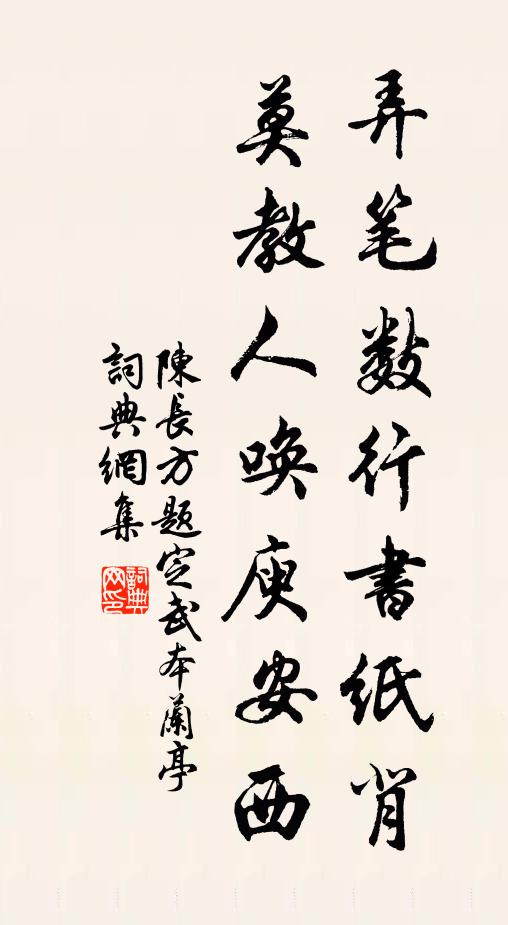 弄笔数行書纸背
莫教人唤庾安西
陳長方題定武本蘭亭
詞典網集
詞典网印